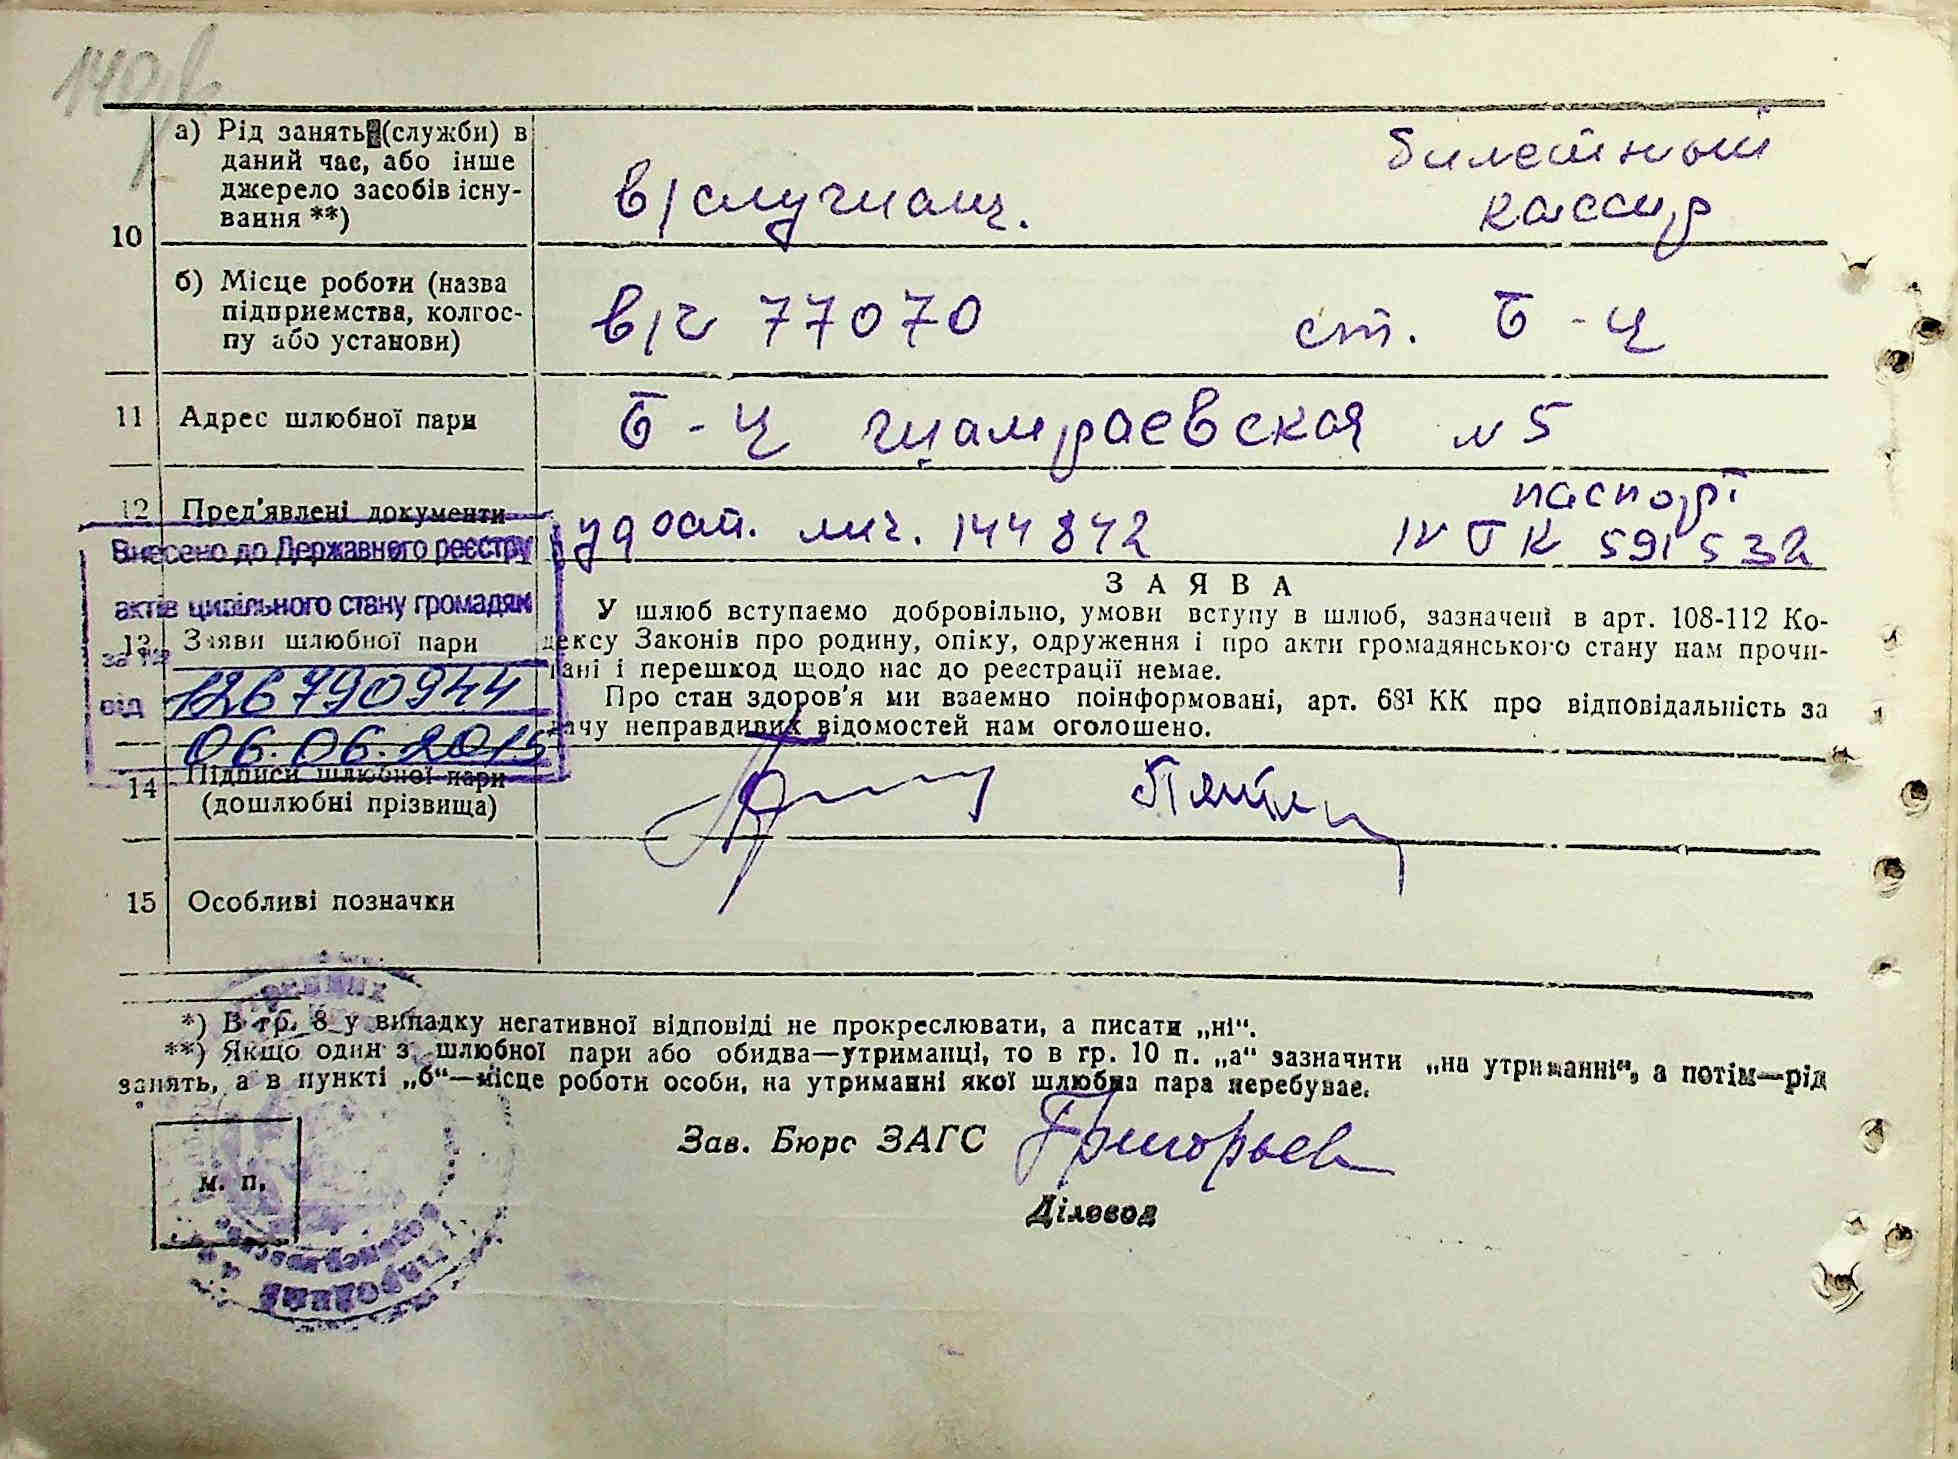 140
10 а) Рід занять (служби) в
даний час, або інше
джерело засобів існу-
вання **)
в/служащ.
билетный
кассир
б) Місце роботи (назва
підприємства, колгос-
пу або установи)
в/ч 77070 ст. Б-Ц
11 Адрес шлюбної пари
Б-Ц Шамраевская № 5
12 Пред'явлені документи
удост. лич. 144842
паспорт
IV БК 591532
Внесено до Державного реєстру
актів цивільного стану громадян
за №
126790944
від
06.06.2015
13 Заяви шлюбної пари
ЗАЯВА
У шлюб вступаємо добровільно, умови вступу в шлюб, зазначені в арт. 108-112 Ко-
дексу Законів про родину, опіку, одруження і про акти громадянського стану нам прочи-
тані і перешкод щодо нас до реєстрації немає.
Про стан здоров'я ми взаємно поінформовані, арт. 68¹ КК про відповідальність за
дачу неправдивих відомостей нам оголошено.
14 Підписи шлюбної пари
(дошлюбні прізвища)
15 Особливі позначки
*) В гр. 8 у випадку негативної відповіді не прокреслювати, а писати „ні“.
**) Якщо один з шлюбної пари або обидва—утриманці, то в гр. 10 п. „а“ зазначити „на утриманні“, а потім—рід
занять, а в пункті „б“—місце роботи особи, на утриманні якої шлюбна пара перебуває.
Зав. Бюро ЗАГС Григорьев
м. п.
Діловод